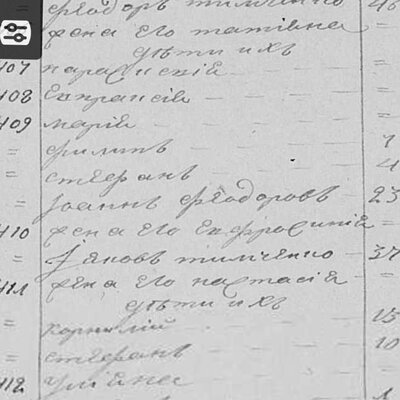 Ѳеодоръ Тимченко 46
жена его Татиѧна
дѣти ихъ
407 Параскевій
408 Евпраксій
409 Марій
Филипъ 7
Стефанъ 4
Іоаннъ Ѳеодоровъ 23
410 жена его Евфросиній
Іаковъ Тимченко 37
411 жена его Настасія
дѣти ихъ
Корнилій 13
Стефанъ 10
412 Улійна